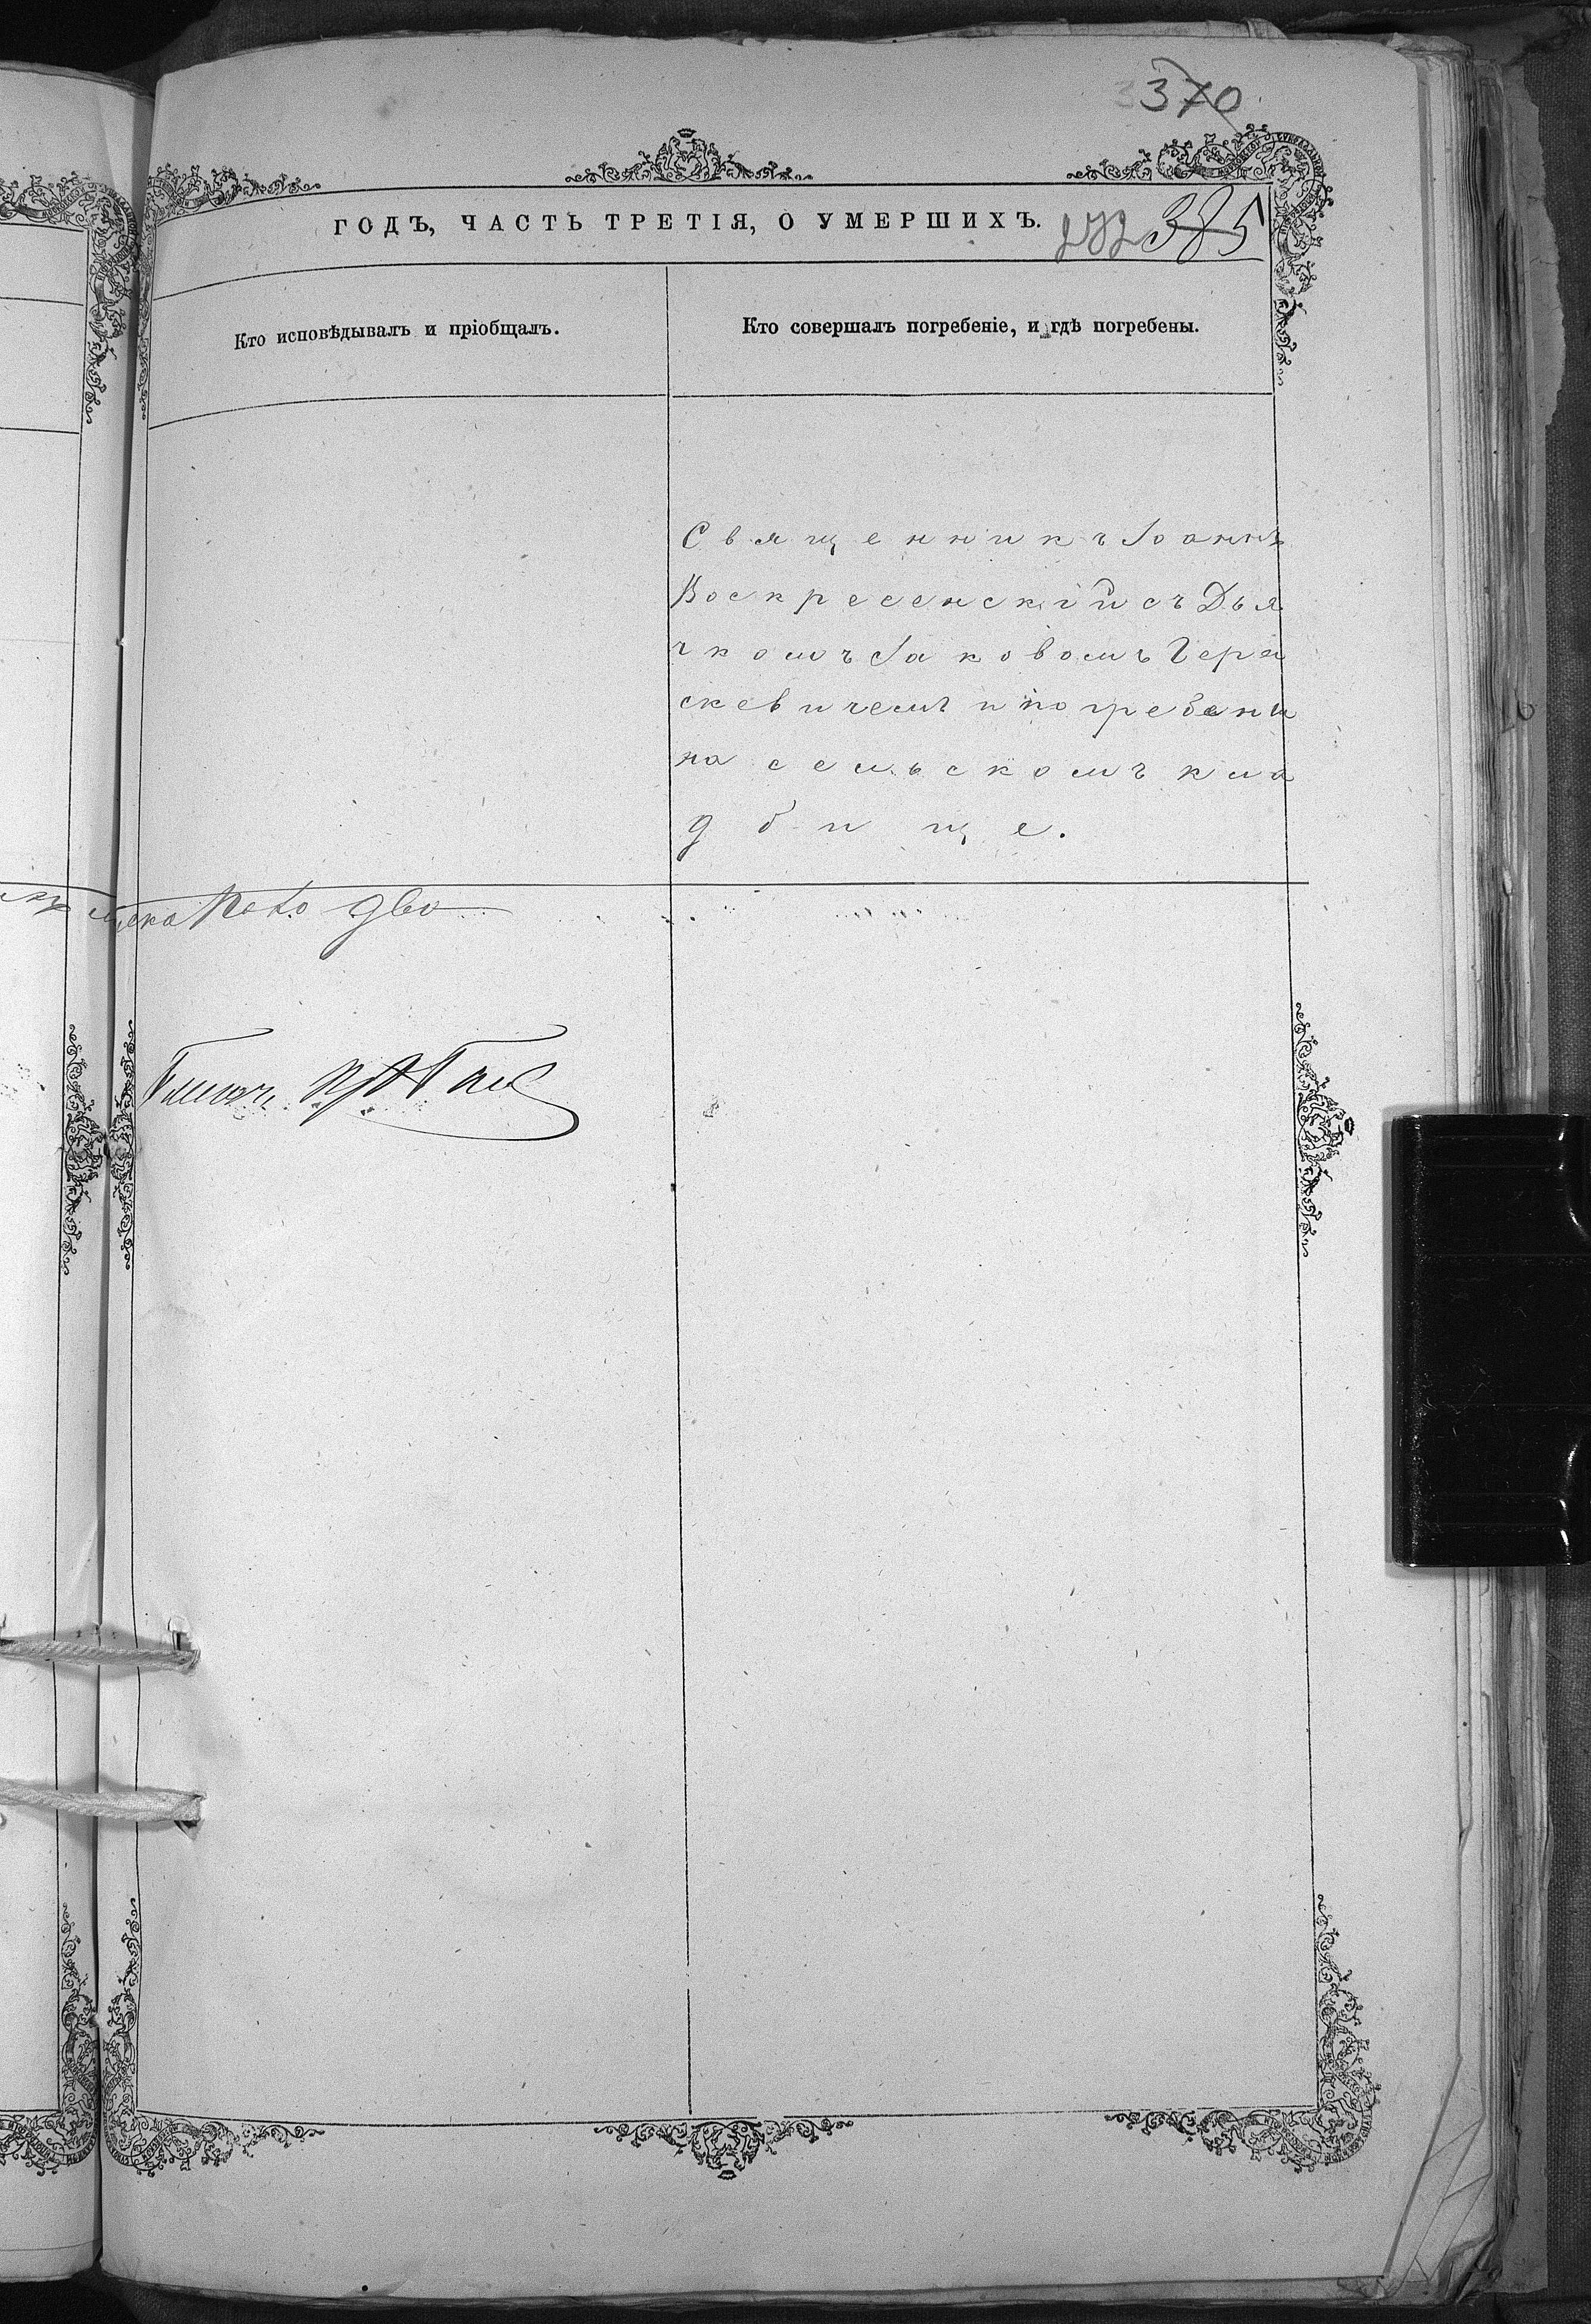 370
ГОДЪ, ЧАСТЬ ТРЕТІЯ, О УМЕРШИХЪ.
385
Кто исповѣдывалъ и пріобщалъ.
Кто совершалъ погребеніе, и гдѣ погребены.
Священникъ Іоаннъ
Воскресенскій съ Дья
чкомъ Іаковомъ Гера
скевичемъ и погребены
на сельскомъ кла
дбище.